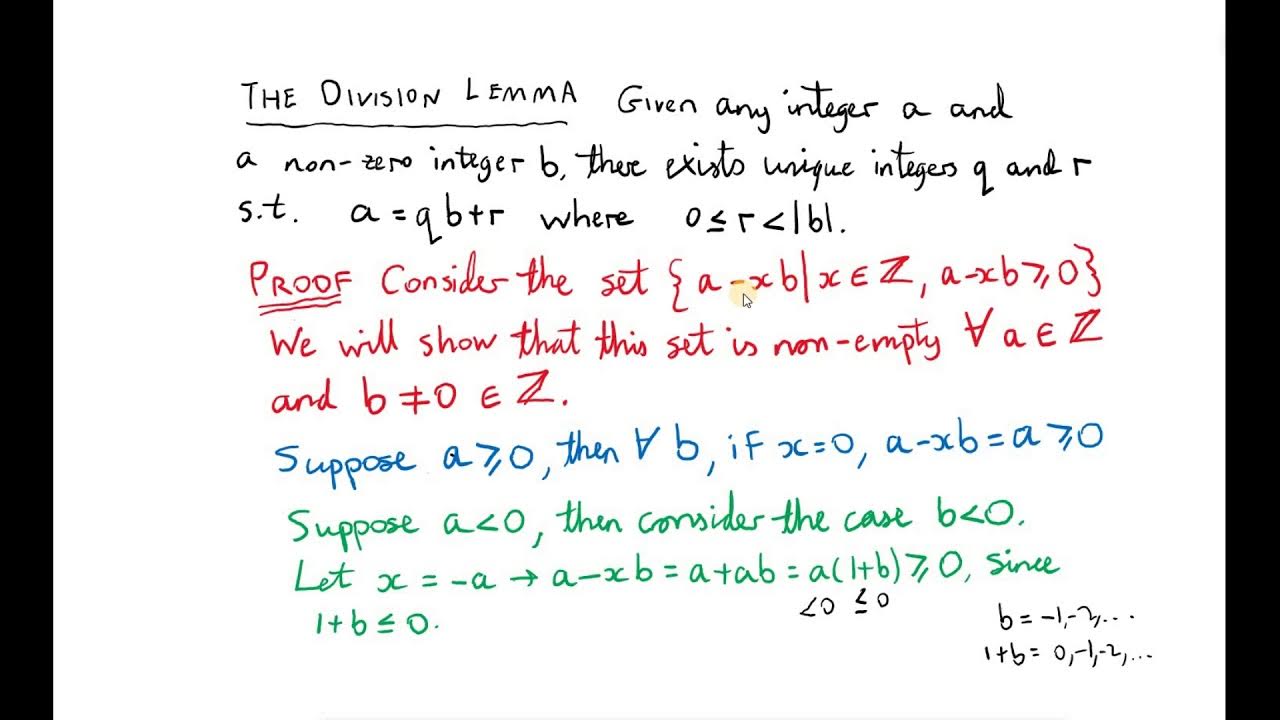 THE DIVISION LEMMA Given any integer a and
a non-zero integer b, there exists unique integers q and r
s.t. a = qb+r where 0 ≤ r < |b|.
PROOF Consider the set {a-xb | x ∈ ℤ, a-xb ⩾ 0}
We will show that this set is non-empty ∀ a ∈ ℤ
and b ≠ 0 ∈ ℤ.
Suppose a ⩾ 0, then ∀ b, if x=0, a-xb = a ⩾ 0
Suppose a<0, then consider the case b<0.
Let x = -a → a-xb = a+ab = a(1+b) ⩾ 0, since
<0 ≤0
1+b ≤ 0.
b = -1,-2,...
1+b = 0,-1,-2,...